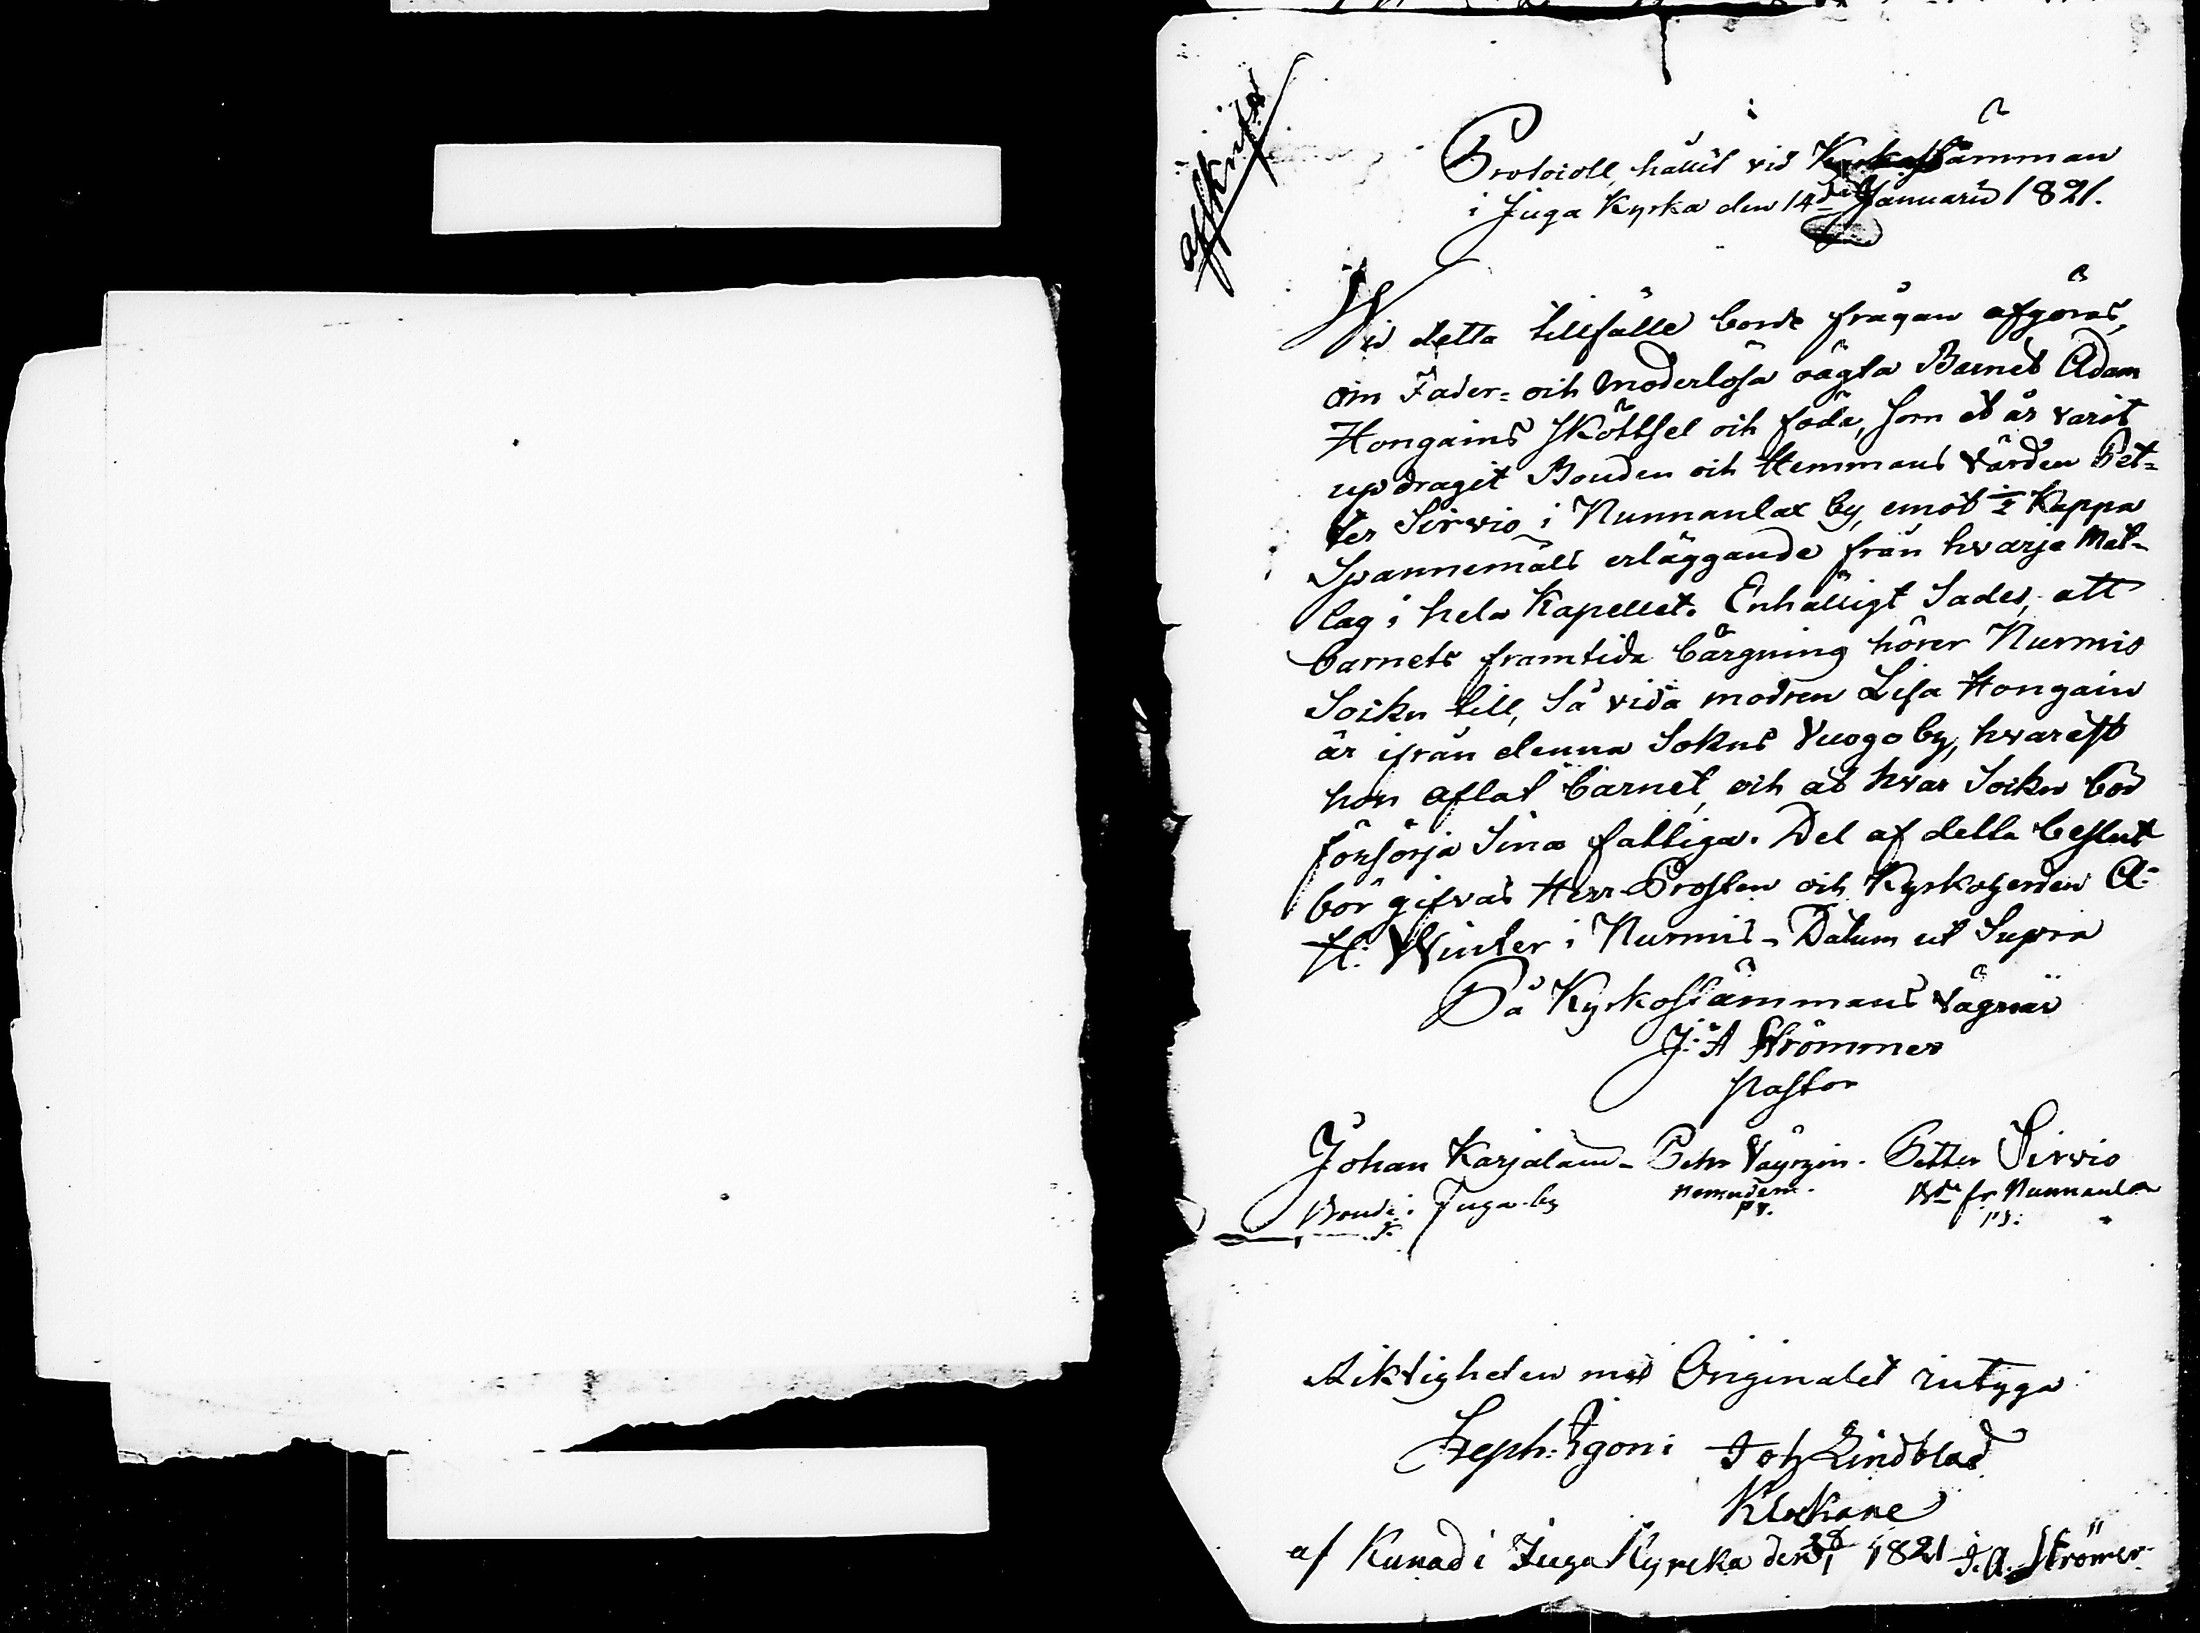 afskrift
Protocoll, hållit vid Kyrkostämman
i Juga Kyrka den 14de Januarii 1821.
Wid detta tillfälle borde frågan afgöras,
om Fader- och moderlösa oägta Barnet Adam
Hongains Skötsel och föda, som et år varit
updragit Bonden och Hemmans Värden Pet-
ter Sirvio i Nunnanlax by, emot ½ Kappa
Spannemåls erläggande från hvarje Mat-
lag i hela Kapellet. Enhälligt Sades, att
barnets framtida bärgning hörer Nurmis
Sockn till, Så vida modren Lisa Hongain
är ifrån denna Sokns Vuogo by, hvarest
hon aflat barnet, och at hvar Sockn bör
försörja Sina fattiga. Del af detta beslut
bör gifvas Herr Prosten och Kyrkoherden A:
H: Winter i Nurmis - Datum ut Supra
På Kyrkostämmans vägnar
J: A Strömmer
Pastor
Johan Karjalain - Petter Väyryin. Petter Sirvio
Bonde i Juga by nemndem. Bde fr. Nunnanla
Riktigheten med Originalet intyga
Zeph: Igoni Joh Lindblad
Klockare
af Kunad i Juga Kyrcka den 1821 J. A. Strömer